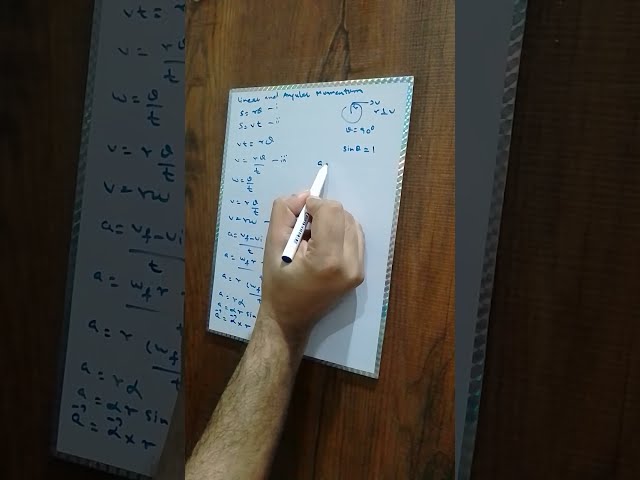 Linear and Angular Momentum
S = rθ — i
S = vt — ii
vt = rθ
v = rθ/t — iii
ω = θ/t
v = r θ/t
v = rω
a = vf - vi / t
a = ωf r -
a = r (ωf
a = rα
a = αr sin
a = α × r
r ⊥ v
θ = 90°
sinθ = 1
a